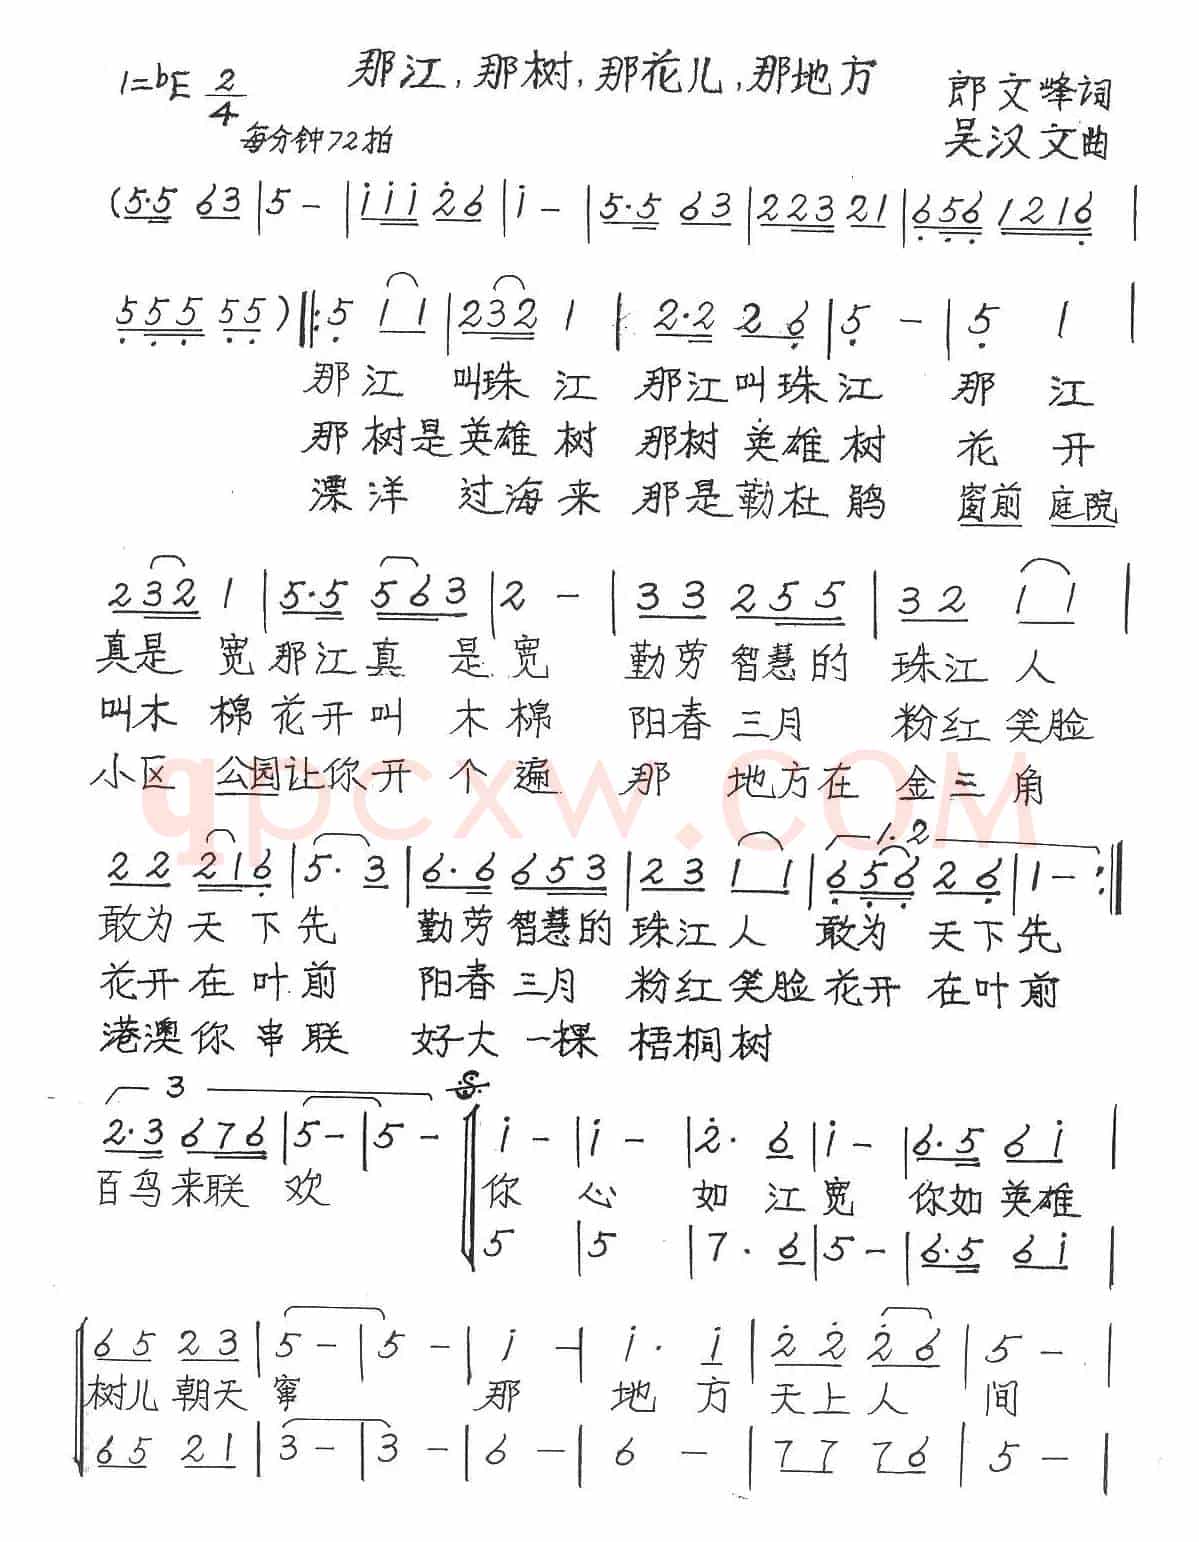 那江,那树,那花儿,那地方
1=bE 2/4
每分钟72拍
郎文峰词
吴汉文曲
(5·5 63 | 5 - | i i i 26 | i - | 5·5 63 | 223 21 | 656 1216 |
555 55) ‖: 5 11 | 232 1 | 2·2 26 | 5 - | 5 1 |
那江 叫珠江 那江叫珠江 那 江
那树是英雄树 那树英雄树 花 开
漂洋 过海来 那是勒杜鹃 窗前 庭院
232 1 | 5·5 563 | 2 - | 33 255 | 32 11 |
真是 宽那江真 是宽 勤劳智慧的 珠江人
叫木 棉花开叫 木棉 阳春三月 粉红笑脸
小区 公园让你开 个遍 那 地方在 金三角
qpcxw.com
1.2
22 216 | 5· 3 | 6·6 653 | 23 11 | 656 26 | 1 - :‖
敢为天下先 勤劳智慧的 珠江人 敢为 天下先
花开在叶前 阳春三月 粉红笑脸花开 在叶前
港澳你串联 好大一棵 梧桐树
3
2·3 676 | 5 - | 5 - i - | i - | 2· 6 | i - | 6·5 6i |
百鸟来联 欢 你 心 如江宽 你如英雄
5 | 5 | 7· 6 | 5 - | 6·5 6i |
65 23 | 5 - | 5 - | i - | i· i | 22 26 | 5 - |
树儿朝天 窜 那 地方 天上人 间
65 21 | 3 - | 3 - | 6 - | 6 - | 77 76 | 5 - |